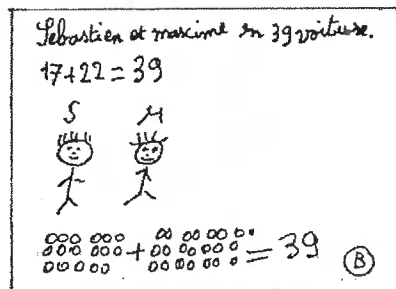 Sébastien et maxime en 39 voituse.
17+22=39
S M
+ = 39
B